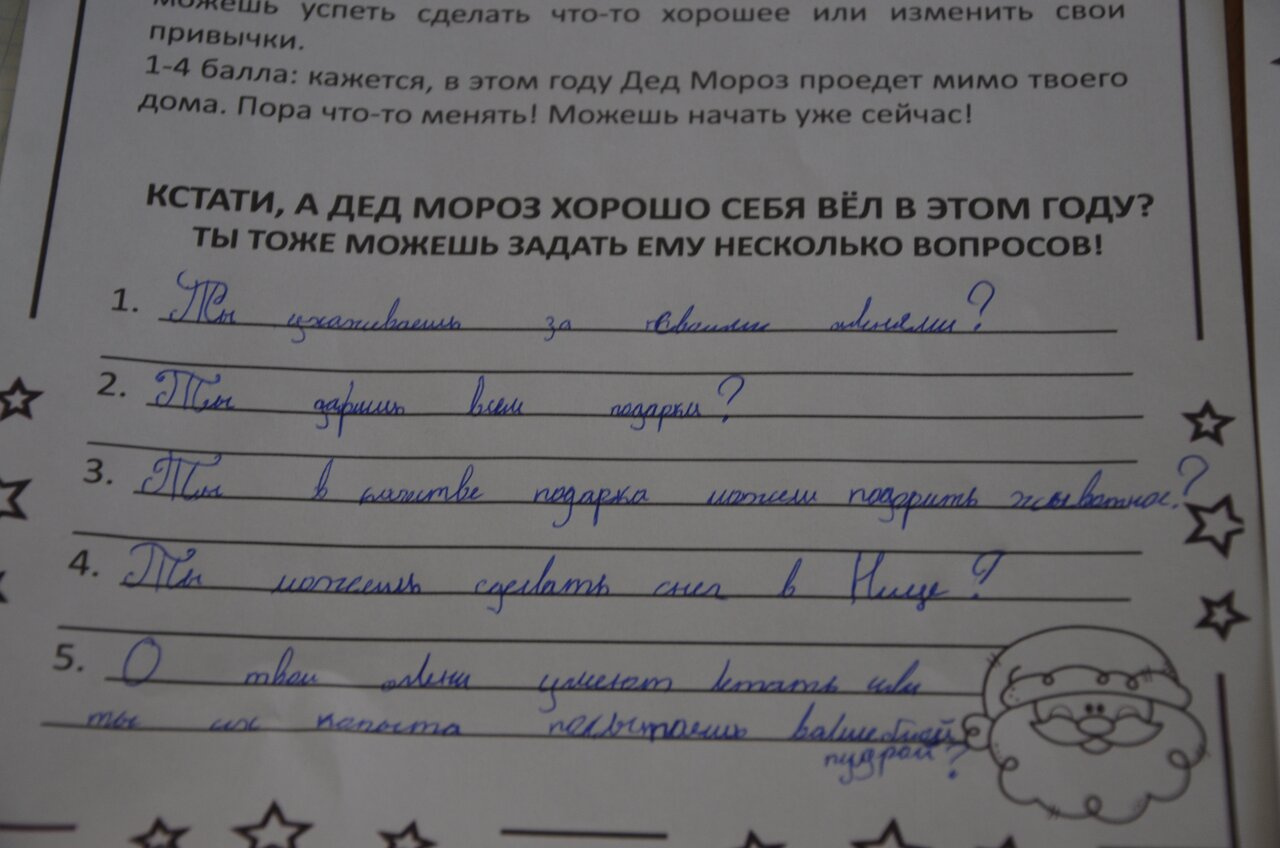 можешь успеть сделать что-то хорошее или изменить свои
привычки.
1-4 балла: кажется, в этом году Дед Мороз проедет мимо твоего
дома. Пора что-то менять! Можешь начать уже сейчас!
КСТАТИ, А ДЕД МОРОЗ ХОРОШО СЕБЯ ВЁЛ В ЭТОМ ГОДУ?
ТЫ ТОЖЕ МОЖЕШЬ ЗАДАТЬ ЕМУ НЕСКОЛЬКО ВОПРОСОВ!
1. Ты ухаживаешь за своими оленями?
2. Ты даришь всем подарки?
3. Ты в качестве подарка можеш подарить жывотное?
4. Ты можешь сделать снег в Ницце?
5. О твои олени умеют летать или
ты их попыта посыпаешь валшебной
пудрой?